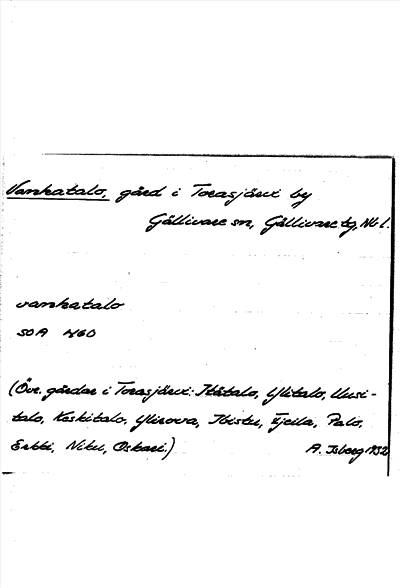 Vanhatalo, gård i Torasjärvi by
Gällivare sn, Gällivare tg, Nb l.
vanhatalo
SOA 460
(Övr. gårdar i Torasjärvi: Itätalo, Ylitalo, Uusi-
talo, Keskitalo, Ylirova, Palo,
Erkki, Niku, Oskari.) A. Isberg 1932